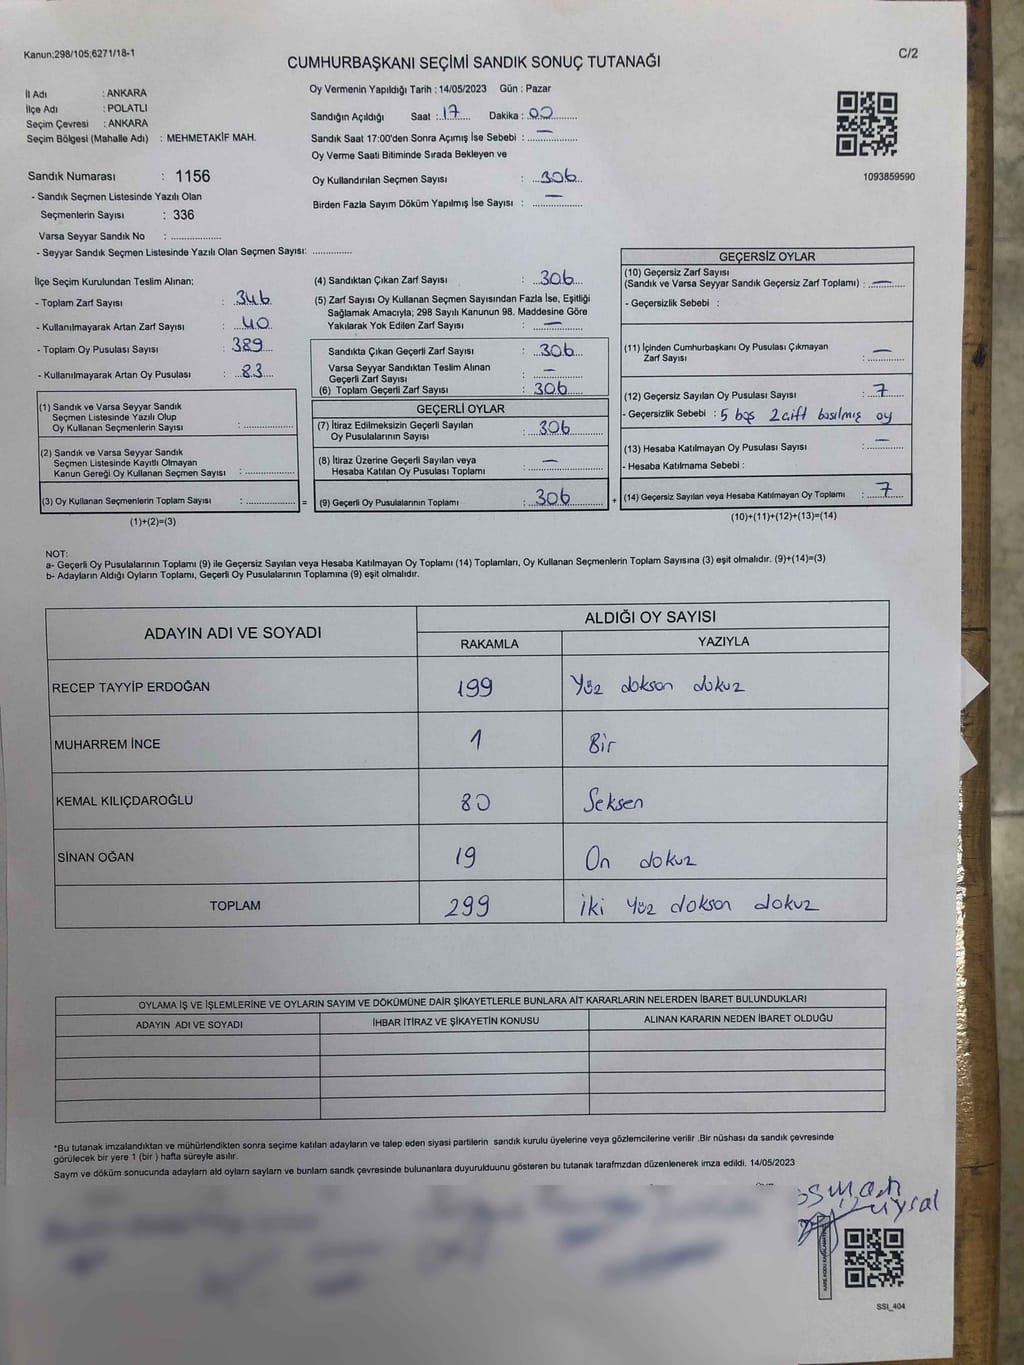 Kanun;298/105,6271/18-1
C/2
CUMHURBAŞKANI SEÇİMİ SANDIK SONUÇ TUTANAĞI
İl Adı : ANKARA
İlçe Adı : POLATLI
Seçim Çevresi : ANKARA
Seçim Bölgesi (Mahalle Adı) : MEHMETAKİF MAH.
Oy Vermenin Yapıldığı Tarih : 14/05/2023 Gün : Pazar
Sandığın Açıldığı Saat : 17 Dakika : 00
Sandık Saat 17:00'den Sonra Açımış İse Sebebi : —
Oy Verme Saati Bitiminde Sırada Bekleyen ve
Oy Kullandırılan Seçmen Sayısı : 306
Birden Fazla Sayım Döküm Yapılmış İse Sayısı : —
1093859590
Sandık Numarası : 1156
- Sandık Seçmen Listesinde Yazılı Olan
Seçmenlerin Sayısı : 336
Varsa Seyyar Sandık No : ....................
- Seyyar Sandık Seçmen Listesinde Yazılı Olan Seçmen Sayısı: ................
İlçe Seçim Kurulundan Teslim Alınan;
- Toplam Zarf Sayısı : 346
- Kullanılmayarak Artan Zarf Sayısı : 40
- Toplam Oy Pusulası Sayısı : 389
- Kullanılmayarak Artan Oy Pusulası : 83
(1) Sandık ve Varsa Seyyar Sandık
Seçmen Listesinde Yazılı Olup
Oy Kullanan Seçmenlerin Sayısı :
(2) Sandık ve Varsa Seyyar Sandık
Seçmen Listesinde Kayıtlı Olmayan
Kanun Gereği Oy Kullanan Seçmen Sayısı :
(3) Oy Kullanan Seçmenlerin Toplam Sayısı : =
(1)+(2)=(3)
(4) Sandıktan Çıkan Zarf Sayısı : 306
(5) Zarf Sayısı Oy Kullanan Seçmen Sayısından Fazla İse, Eşitliği
Sağlamak Amacıyla; 298 Sayılı Kanunun 98. Maddesine Göre
Yakılarak Yok Edilen Zarf Sayısı : —
Sandıkta Çıkan Geçerli Zarf Sayısı : 306
Varsa Seyyar Sandıktan Teslim Alınan
Geçerli Zarf Sayısı : —
(6) Toplam Geçerli Zarf Sayısı : 306
GEÇERLİ OYLAR
(7) İtiraz Edilmeksizin Geçerli Sayılan
Oy Pusulalarının Sayısı : 306
(8) İtiraz Üzerine Geçerli Sayılan veya
Hesaba Katılan Oy Pusulası Toplamı : —
(9) Geçerli Oy Pusulalarının Toplamı : 306 +
GEÇERSİZ OYLAR
(10) Geçersiz Zarf Sayısı
(Sandık ve Varsa Seyyar Sandık Geçersiz Zarf Toplamı) : —
- Geçersizlik Sebebi :
(11) İçinden Cumhurbaşkanı Oy Pusulası Çıkmayan
Zarf Sayısı : —
(12) Geçersiz Sayılan Oy Pusulası Sayısı : 7
- Geçersizlik Sebebi : 5 boş 2 çift basılmış oy
(13) Hesaba Katılmayan Oy Pusulası Sayısı : —
- Hesaba Katılmama Sebebi :
(14) Geçersiz Sayılan veya Hesaba Katılmayan Oy Toplamı : 7
(10)+(11)+(12)+(13)=(14)
NOT:
a- Geçerli Oy Pusulalarının Toplamı (9) ile Geçersiz Sayılan veya Hesaba Katılmayan Oy Toplamı (14) Toplamları, Oy Kullanan Seçmenlerin Toplam Sayısına (3) eşit olmalıdır. (9)+(14)=(3)
b- Adayların Aldığı Oyların Toplamı, Geçerli Oy Pusulalarının Toplamına (9) eşit olmalıdır.
ADAYIN ADI VE SOYADI ALDIĞI OY SAYISI
RAKAMLA YAZIYLA
RECEP TAYYİP ERDOĞAN 199 Yüz doksan dokuz
MUHARREM İNCE 1 Bir
KEMAL KILIÇDAROĞLU 80 Seksen
SİNAN OĞAN 19 On dokuz
TOPLAM 299 iki yüz doksan dokuz
OYLAMA İŞ VE İŞLEMLERİNE VE OYLARIN SAYIM VE DÖKÜMÜNE DAİR ŞİKAYETLERLE BUNLARA AİT KARARLARIN NELERDEN İBARET BULUNDUKLARI
ADAYIN ADI VE SOYADI İHBAR İTİRAZ VE ŞİKAYETİN KONUSU ALINAN KARARIN NEDEN İBARET OLDUĞU
*Bu tutanak imzalandıktan ve mühürlendikten sonra seçime katılan adayların ve talep eden siyasi partilerin sandık kurulu üyelerine veya gözlemcilerine verilir .Bir nüshası da sandık çevresinde
görülecek bir yere 1 (bir ) hafta süreyle asılır.
Sayım ve döküm sonucunda adayların ald oyların sayları ve bunların sandk çevresinde bulunanlara duyurulduunu gösteren bu tutanak tarafmzdan düzenlenerek imza edildi. 14/05/2023
Uysal
SSI_404